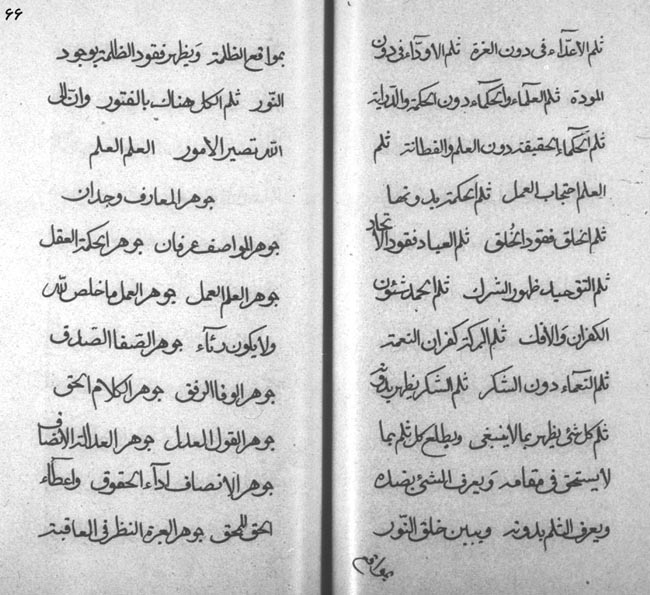 ثلم الاعدّآء فی دون العزة ثلم الاودّآء فی دون
المودة ثلم العلمآء والحکمآء بدون الحکمة والدرایة
ثلم الحکمآء الحقیقة دون العلم والفطانة ثلم
العلم احتجاب العمل ثلم الحکمة بدونها
ثلم الخلق فقود الخُلق ثلم العباد فقود الاتحاد
ثلم التوحید ظهور الشرک ثلم الحمد شئون
الکفران والافک ثلم البرکة کفران النعمة
ثلم النعمآء دون الشکر ثلم الشکر یظهر بدونه
ثلم کل شئ یظهر بما لا ینبغی ویطلع کل ثلم بما
لا یستحق فی مقامه ویعرف الشئ بضده
ویعرف الثلم بدونه ویبین خلق النّور
بمواقع
۶۶
بمواقع الظلمة ویظهر فقود الظلمة بوجود
النّور ثلم الکل هناک بالفتور وان الی
الله تصیر الامور العلم العلم
جوهر المعارف وجدان
جوهر المواصف عرفان جوهر الحکمة العقل
جوهر العلم العمل جوهر العمل ما خلص لله
ولا یکون رئآء جوهر الصّفا الصّدق
جوهر الوفا الرفق جوهر الکلام الحق
جوهر القول العدل جوهر العدالة الانصاف
جوهر الانصاف ادآء الحقوق واعطآء
الحق للمحق جوهر العزة النظر فی العاقبة